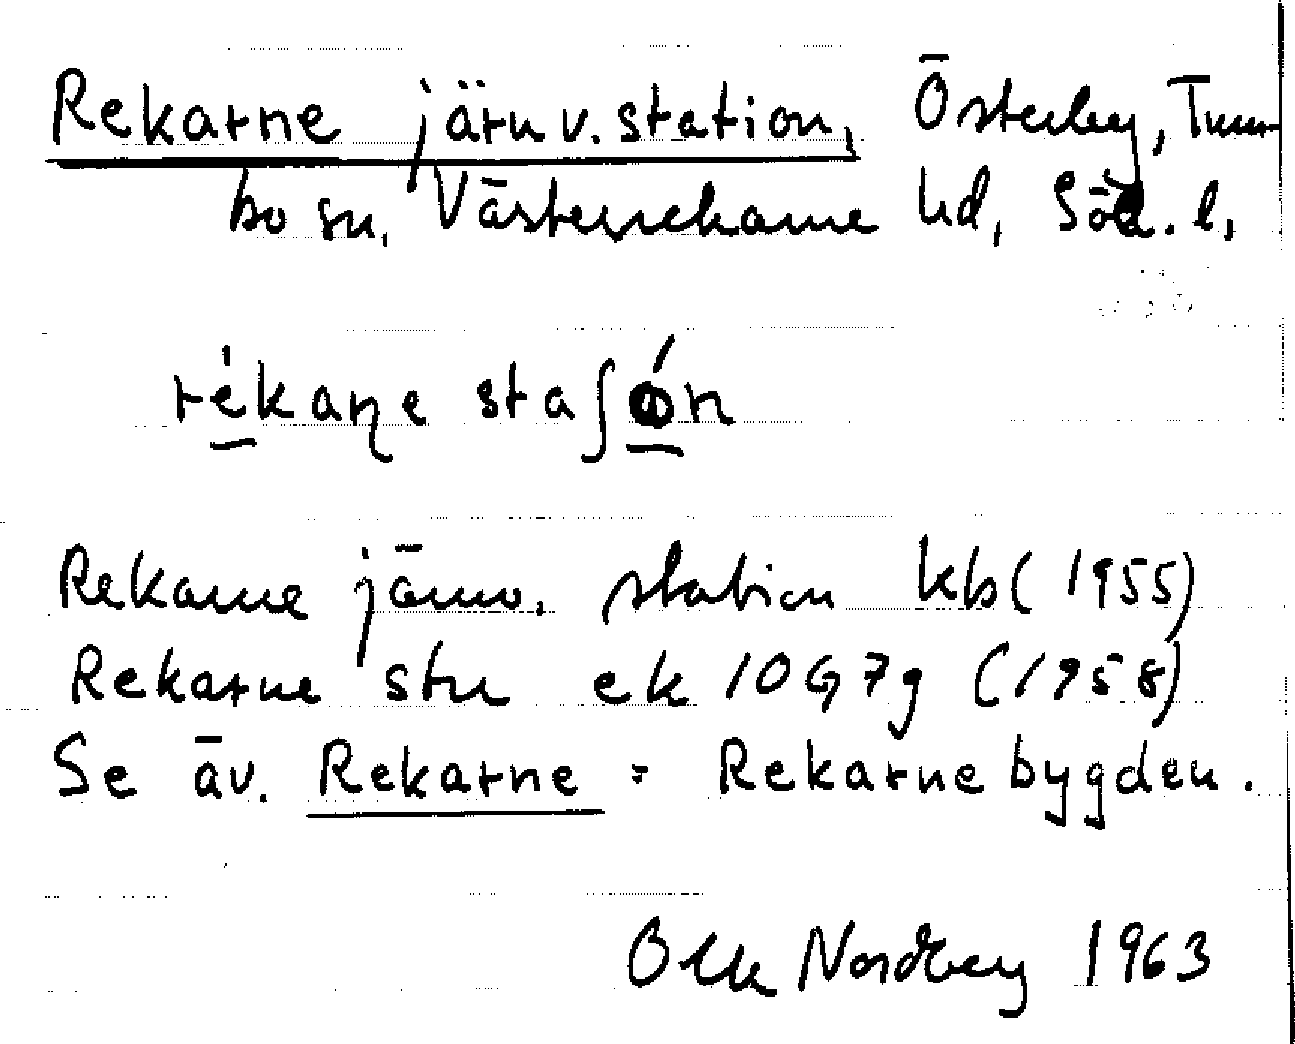 Rekarne järnv. station, Österby, Tum-
bo sn, Västerrekarne hd, Söd. l,
rékaɳe staʃón
Rekarne järnv. station kb (1955)
Rekarne stn ek 10G7g (1958)
Se äv. Rekarne = Rekarnebygden.
Olle Nordberg 1963